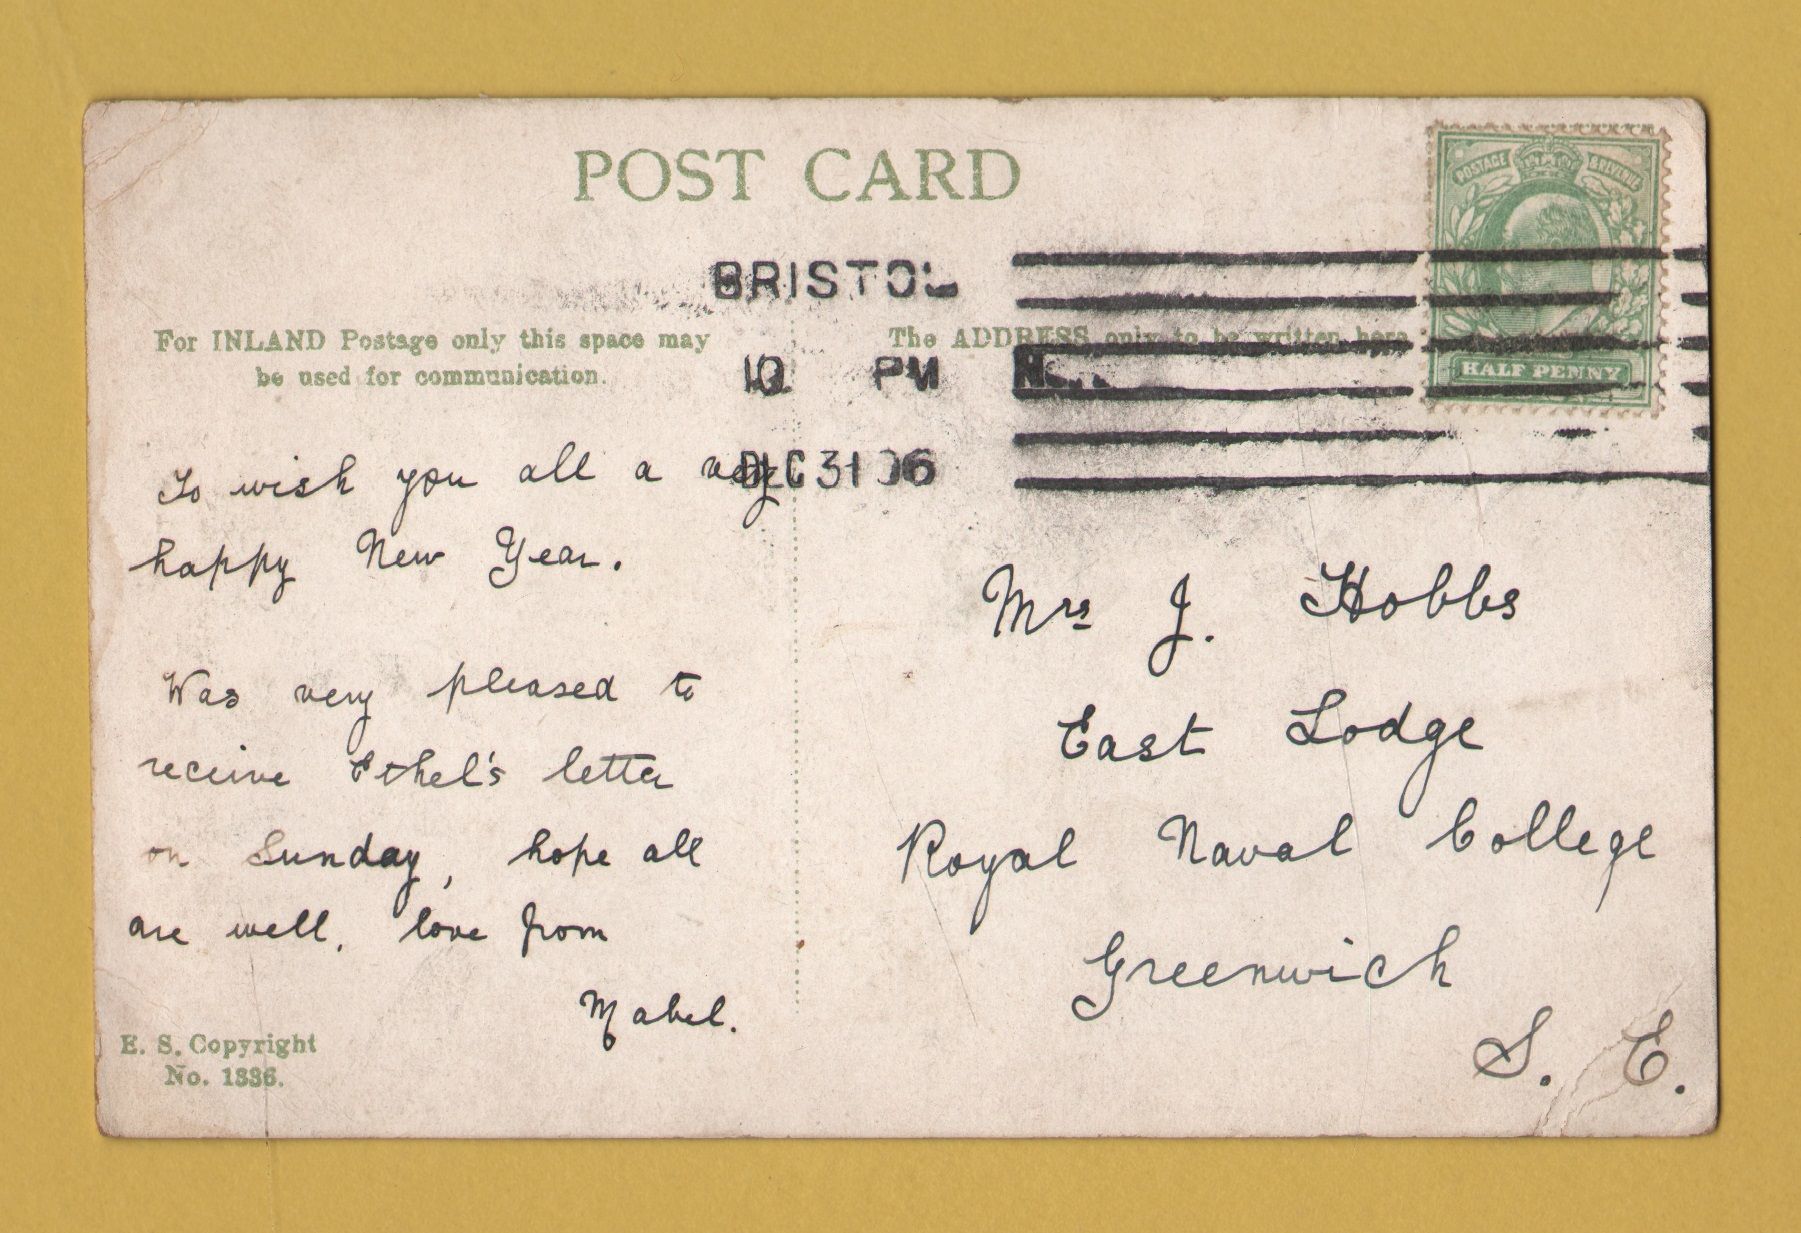 POST CARD
POSTAGE & REVENUE
HALF PENNY
BRISTOL
10 PM
DEC 31 06
For INLAND Postage only this space may
be used for communication.
The ADDRESS only to be written here
To wish you all a very
happy New Year.
Was very pleased to
receive Ethel's letter
on Sunday, hope all
are well. love from
Mabel.
E. S. Copyright
No. 1336.
Mrs J. Hobbs
East Lodge
Royal Naval College
Greenwich
S. E.